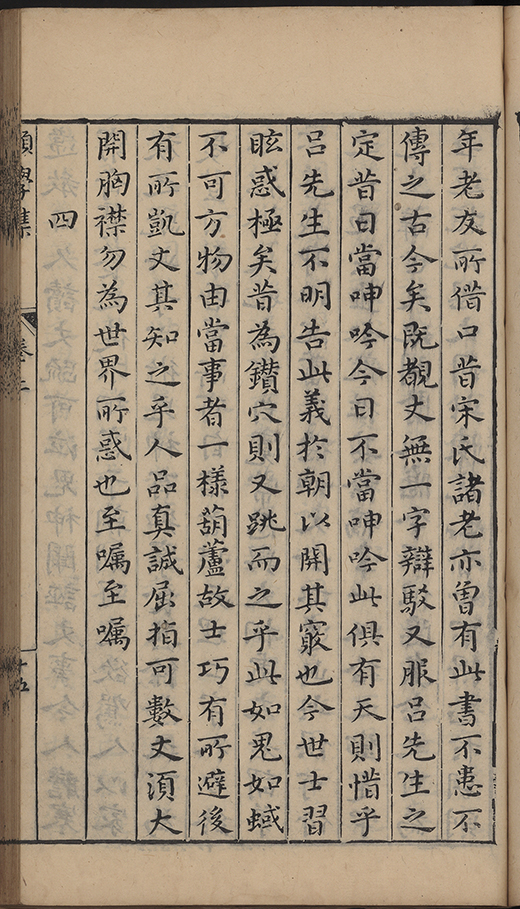 年老友所借口昔宋氏諸老亦曾有此書不患不
傳之古今矣既覩丈無一字辯駁又服呂先生之
定昔日當呻吟今日不當呻吟此俱有天則惜乎
呂先生不明告此義於朝以開其竅也今世士習
眩惑極矣昔為鑽穴則又跳而之乎此如鬼如蜮
不可方物由當事者一樣葫蘆故士巧有所避後
有所凱丈其知之乎人品真誠屈指可數丈須大
開胸襟勿為世界所惑也至嘱至嘱
四
學集
卷二
十五